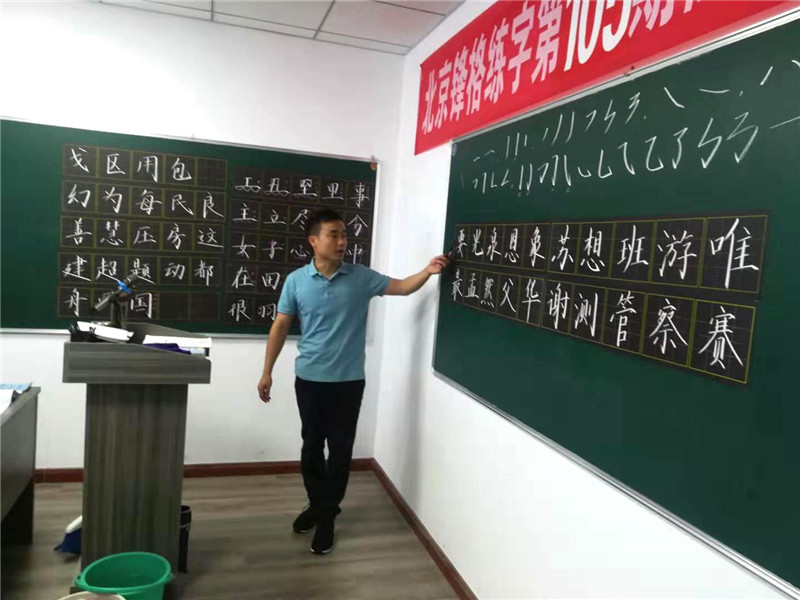 北京锋格练字第105期
戈区用包
幻为每民良
善慧压房这
建超题动都
舟 国
五丑至里事
主立尽 分
女子心 中
在田
很羽
要光泉恩象苏想班游唯
最孟然父华谢测管察赛